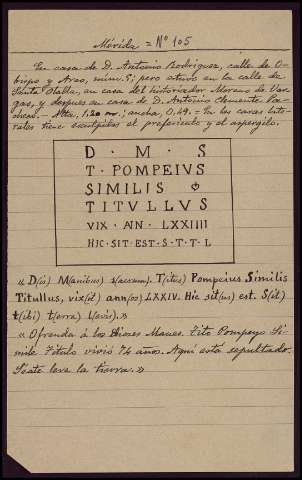 Mérida = Nº 105
En casa de D. Antonio Rodríguez, calle de O-
bispo y Arco, núm. 5; pero estuvo en la calle de
Santa Olalla, en casa del historiador Moreno de Var-
gas, y despues en casa de D. Antonio Clemente Pa-
checo. = Alta, 1,20 m.; ancha, 0,49. = En las caras late-
rales tiene esculpidos el prefericulo y el aspergilo.
D · M · S
T · POMPEIUS
SIMILIS
TITVLLVS
VIX · AN · LXXIIII
HIC · SIT · EST · S · T · T · L
« D(is) M(anibus) s(acrum). T(itus) Pompeius Similis
Titullus, vix(it) ann(os) LXXIV. Hic sit(us) est. S(it)
t(ibi) t(erra) l(evis). »
« Ofrenda á los Dioses Manes. Tito Pompeyo Si-
mile Titulo vivió 74 años. Aquí está sepultado.
Séate leve la tierra. »